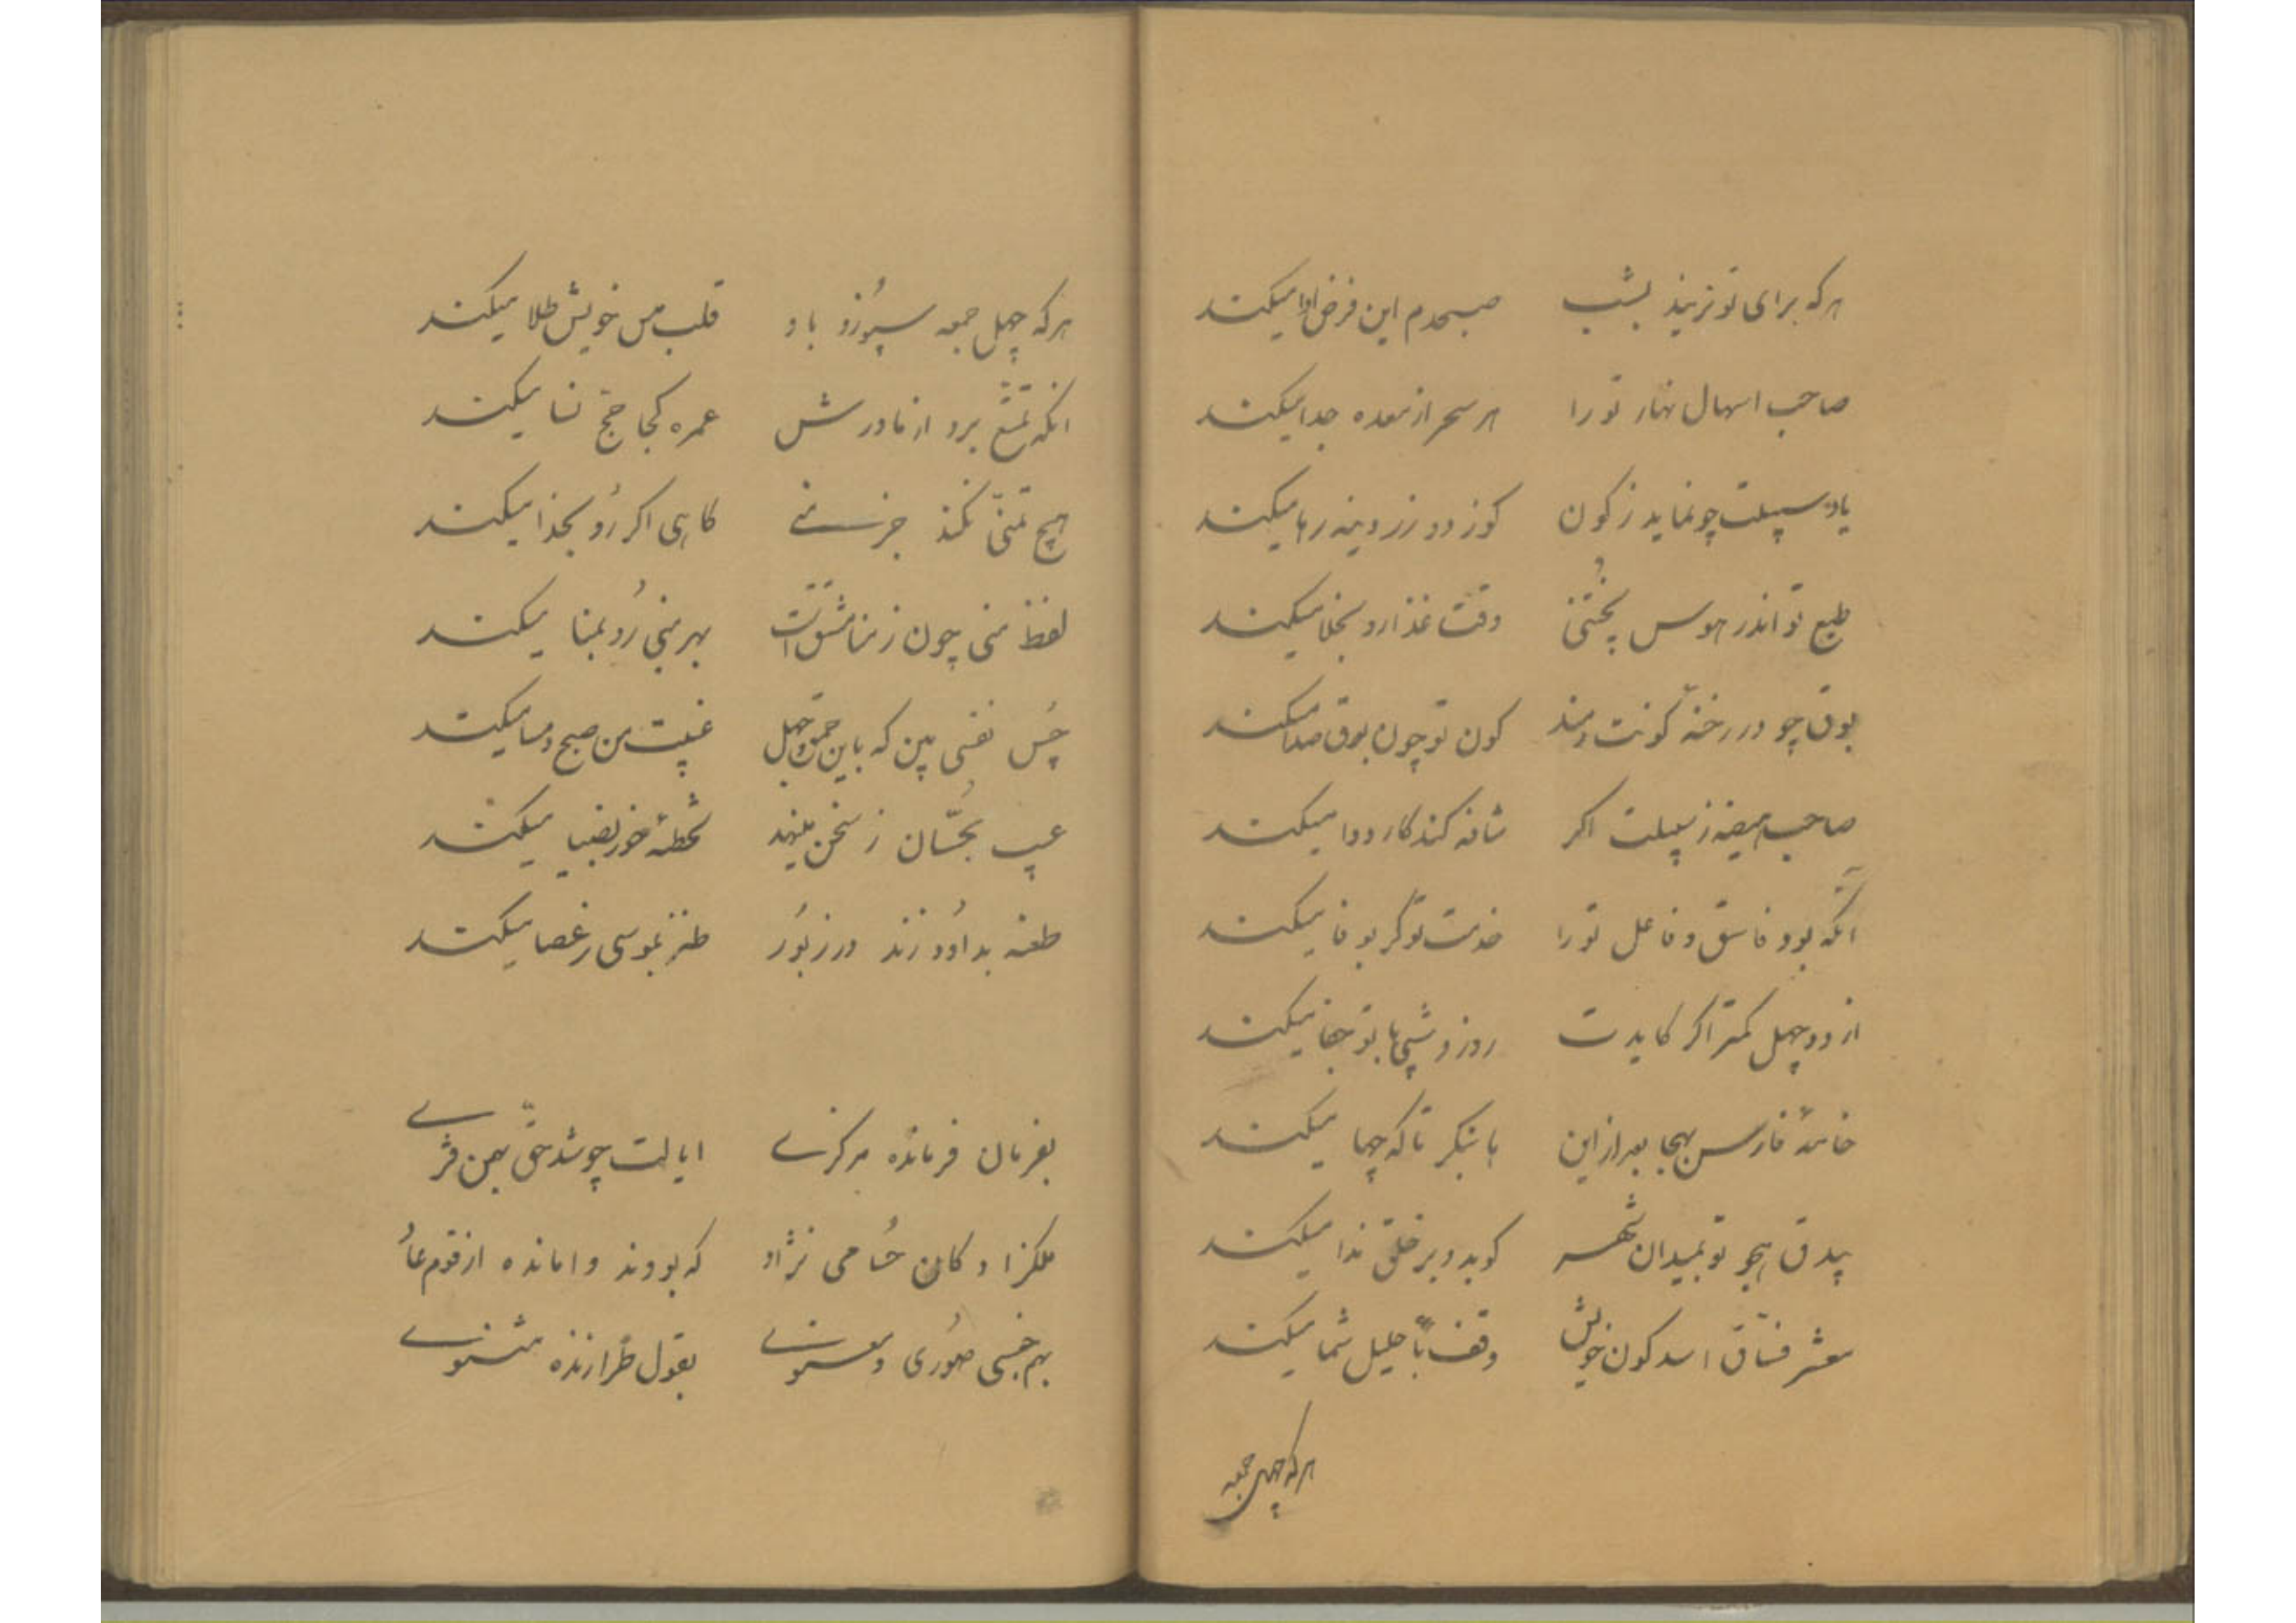 هرکه برای تو نریند بشب    صبحدم این فرض ادا میکند
صاحب اسهال نهار تو را    هر سحر از معده جدا میکند
یاد سبیلت چو نماید ز کون    کوز دو زروینه رها میکند
طبع تو اندر هوس پختنی    وقت غذا رو بخلا میکند
بوق چو در رخنهٔ کونت دمند    کون تو چون بوق صدا میکند
صاحب هیضه ز سبیلت اکر    شافه کند کار دوا میکند
آنکه بود فاسق و فاعل تو را    خدمت تو کر بوفا میکند
از دو چهل کمتر اکر کایدت    روز و شبی با تو جفا میکند
خامهٔ فارس بهجا بعد از این    با بنکر تا که چها میکند
بیدق هجو تو بمیدان شهر    کوبد و بر خلق ندا میکند
معشر فساق اسد کون خویش    وقف باحلیل شما میکند
هرکه چهل جمعه
هرکه چهل جمعه سپوزد باو    قلب مس خویش طلا میکند
انکه تمتع برد از مادرش    عمره کجا حج نسا میکند
هیچ تمنی نکند جز منی    کاهی اکر رو بخدا میکند
لفظ منی چون ز منا مشتق است    بهر منی رو بمنا میکند
چس نفسی بین که باین حمق و جهل    غیبت من صبح و مسا میکند
عیب بحسان ز سخن مینهد    تخطئه خور بضیا میکند
طعنه بداود زند در زبور    طنز بموسی ز عصا میکند
بفرمان فرمانده مرکزی    ایالت چو شد حق بهمن قزی
ملکزادکان حسامی نژاد    که بودند وامانده از قوم عاد
بهم جنسی صوری و معنوی    بقول طرازنده مثنوی